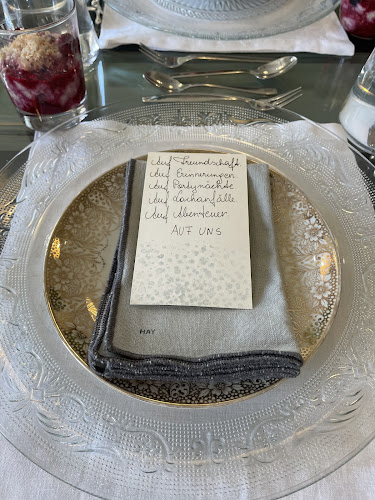 Auf Freundschaft.
Auf Erinnerungen.
Auf Partynächte
Auf Lachanfälle.
Auf Abenteuer.
AUF UNS
HAY